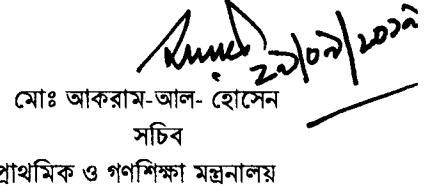 ২৯/০৯/২০১৯
মোঃ আকরাম-আল- হোসেন
সচিব
প্রাথমিক ও গণশিক্ষা মন্ত্রনালয়